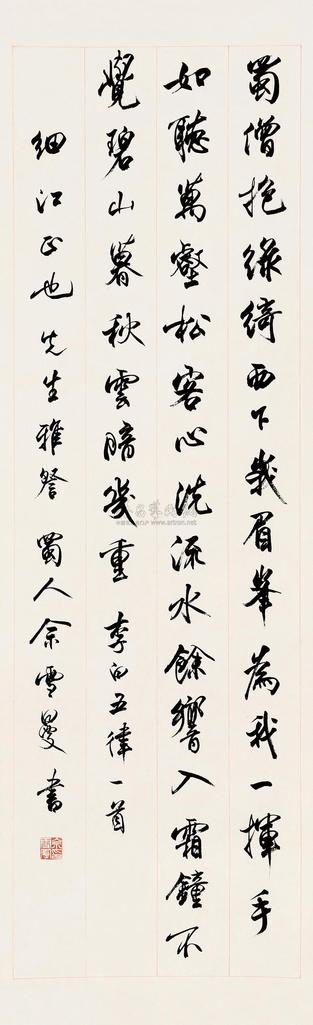 蜀僧抱綠綺西下峩眉峯為我一揮手
如聽萬壑松客心洗流水餘響入霜鐘不
覺碧山暮秋雲暗幾重 李白五律一首
細江正也先生雅詧 蜀人余雪曼書
www.artron.net